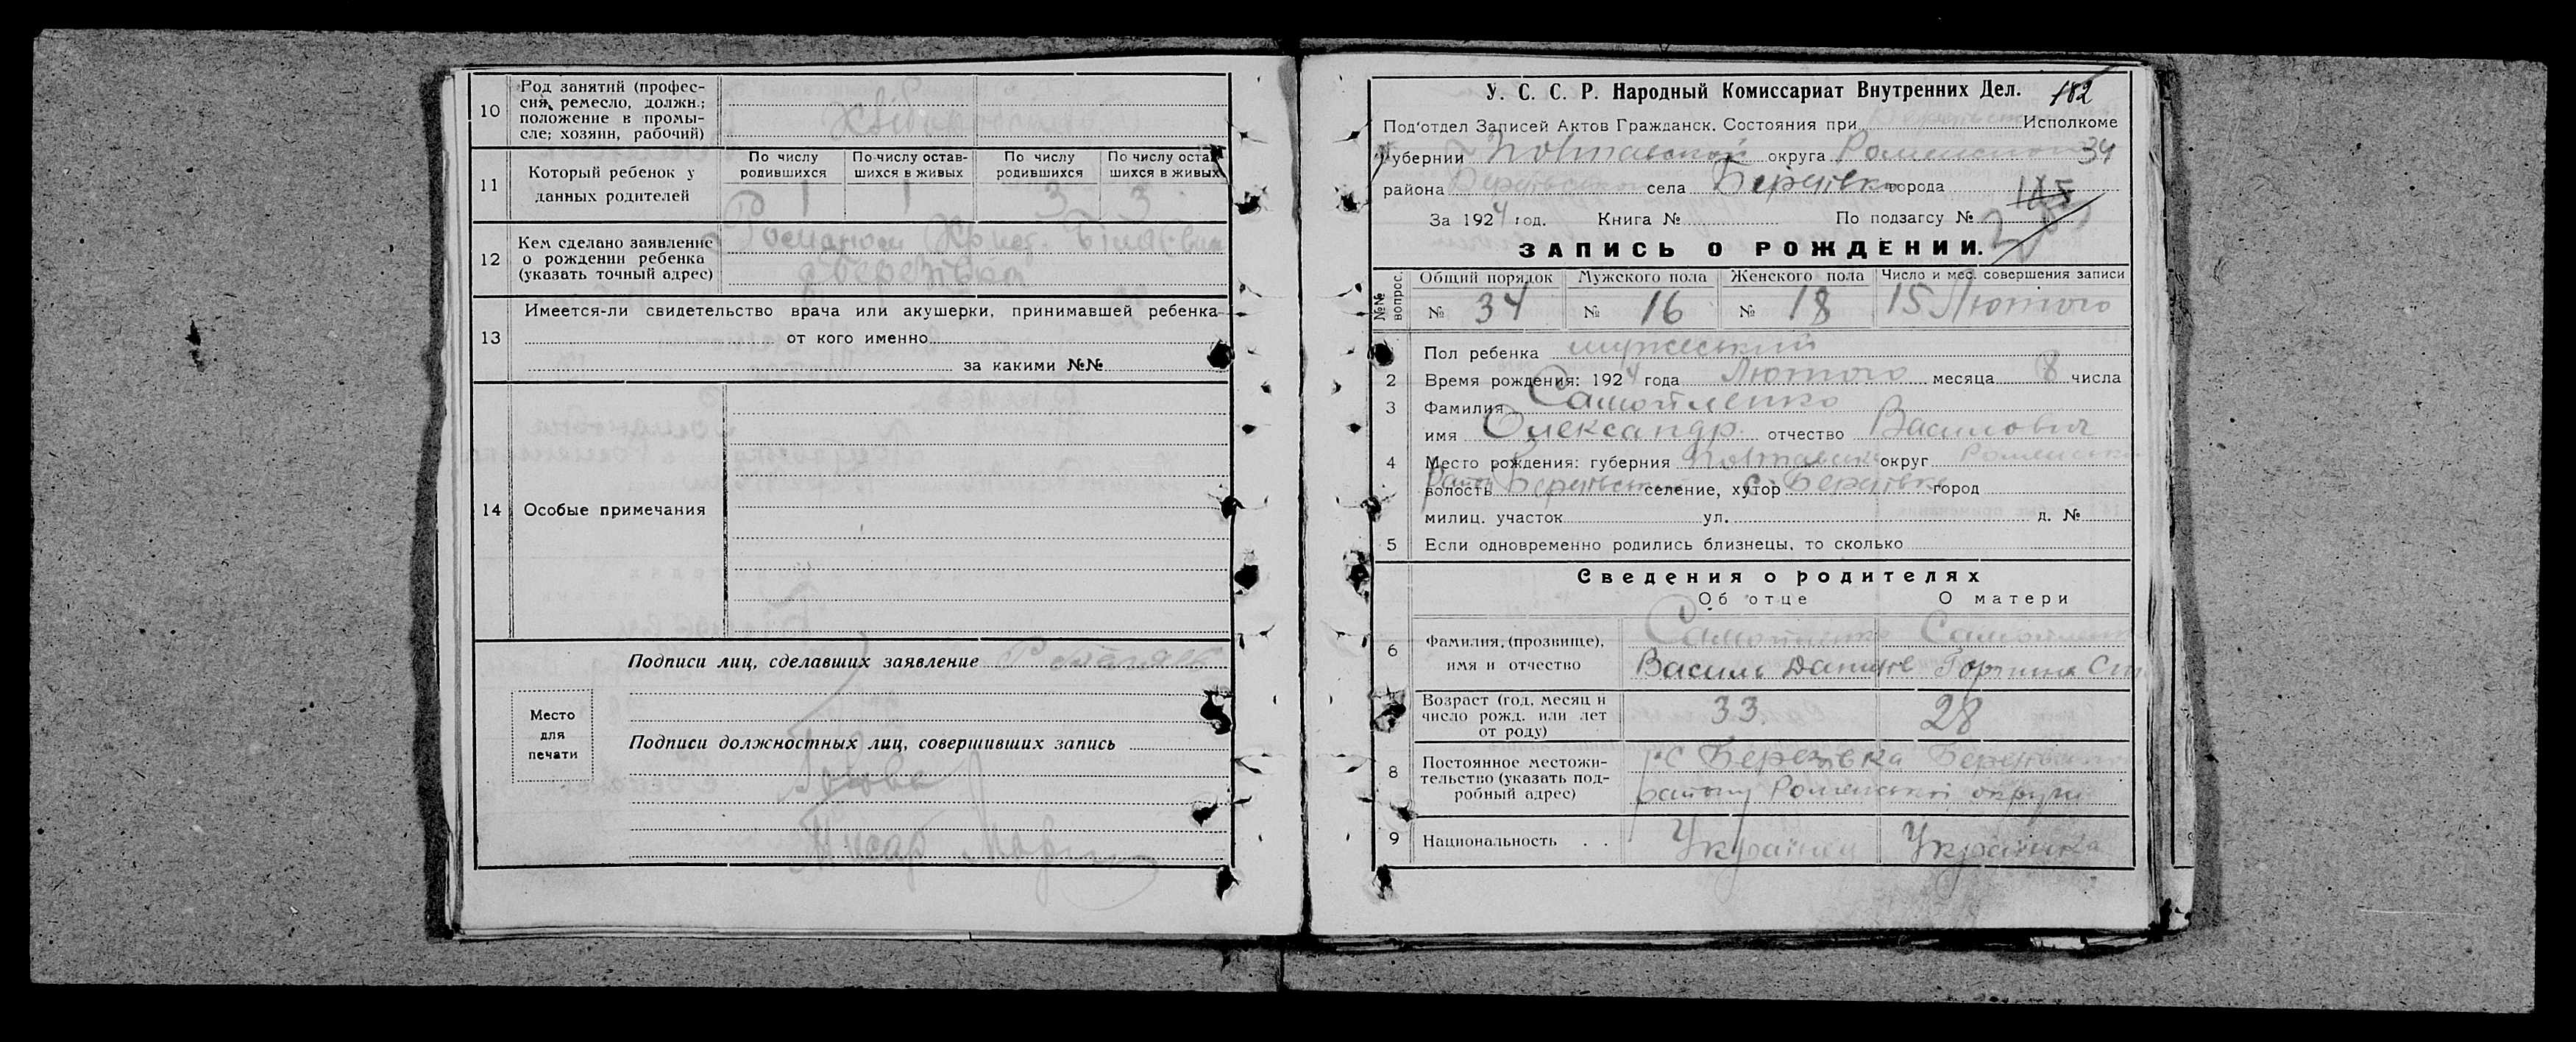 10 Род занятий (профес-
сия, ремесло, должн.;
положение в промы-
сле; хозяин, рабочий)
11 Который ребенок у
данных родителей
По числу родившихся По числу остав-шихся в живых По числу родившихся По числу оста шихся в живых
1 1 3 3
12 Кем сделано заявление
о рождении ребенка
(указать точный адрес)
Романом Крист.
13 Имеется-ли свидетельство врача или акушерки, принимавшей ребенка
от кого именно
за какими №№
14 Особые примечания
Подписи лиц, сделавших заявление
Место
для
печати
Подписи должностных лиц, совершивших запись
Голова
Писар
У. С. С. Р. Народный Комиссариат Внутренних Дел. 182
Под'отдел Записей Актов Гражданск. Состояния при Исполкоме
Губернии Полтавской округа Роменской 34
района села Березівка города 185
За 1924 год. Книга № По подзагсу №
ЗАПИСЬ О РОЖДЕНИИ.
№№ вопрос. Общий порядок Мужского пола Женского пола Число и мес. совершения записи
№ 34 № 16 № 18 15 Лютого
Пол ребенка мужеський
2 Время рождения: 1924 года Лютого месяца 8 числа
3 Фамилия Самойленко
имя Олександр отчество Василович
4 Место рождения: губерния Полтавськ округ Роменськ
волость Район селение, хутор с. Березівка город
милиц. участок ул. д. №
5 Если одновременно родились близнецы, то сколько
Сведения о родителях
Об отце О матери
6 Фамилия, (прозвище),
имя и отчество
Самойленко Самойленко
Василь Данилов Горпина Ст
Возраст (год, месяц и
число рожд. или лет
от роду)
33 28
8 Постоянное местожи-
тельство (указать под-
робный адрес)
с Березівка
району Роменської округи
9 Национальность . . Українец Українка